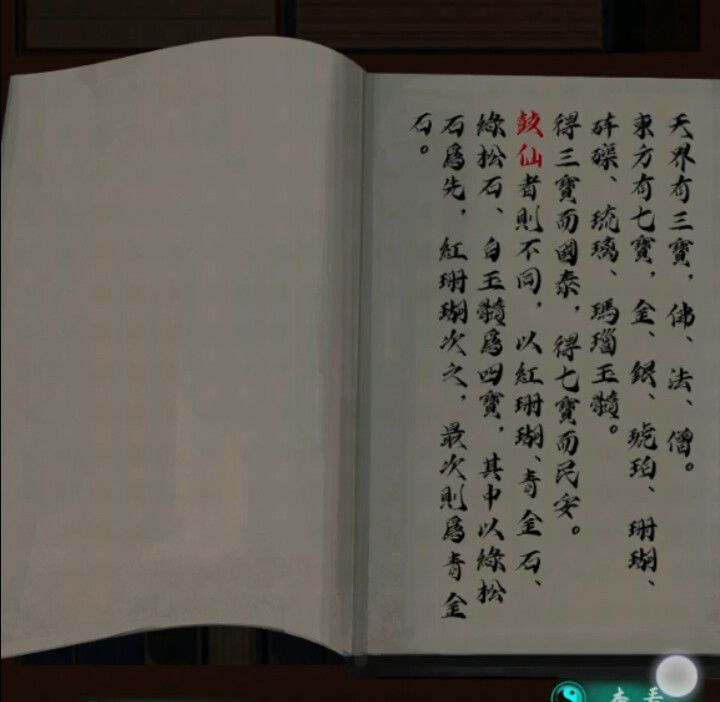 天界有三寶，佛、法、僧。
東方有七寶，金、銀、琥珀、珊瑚、
硨磲、琉璃、瑪瑙玉髓。
得三寶而國泰，得七寶而民安。
鼓仙者則不同，以紅珊瑚、青金石、
綠松石、白玉髓為四寶，其中以綠松
石為先，紅珊瑚次之，最次則為青金
石。